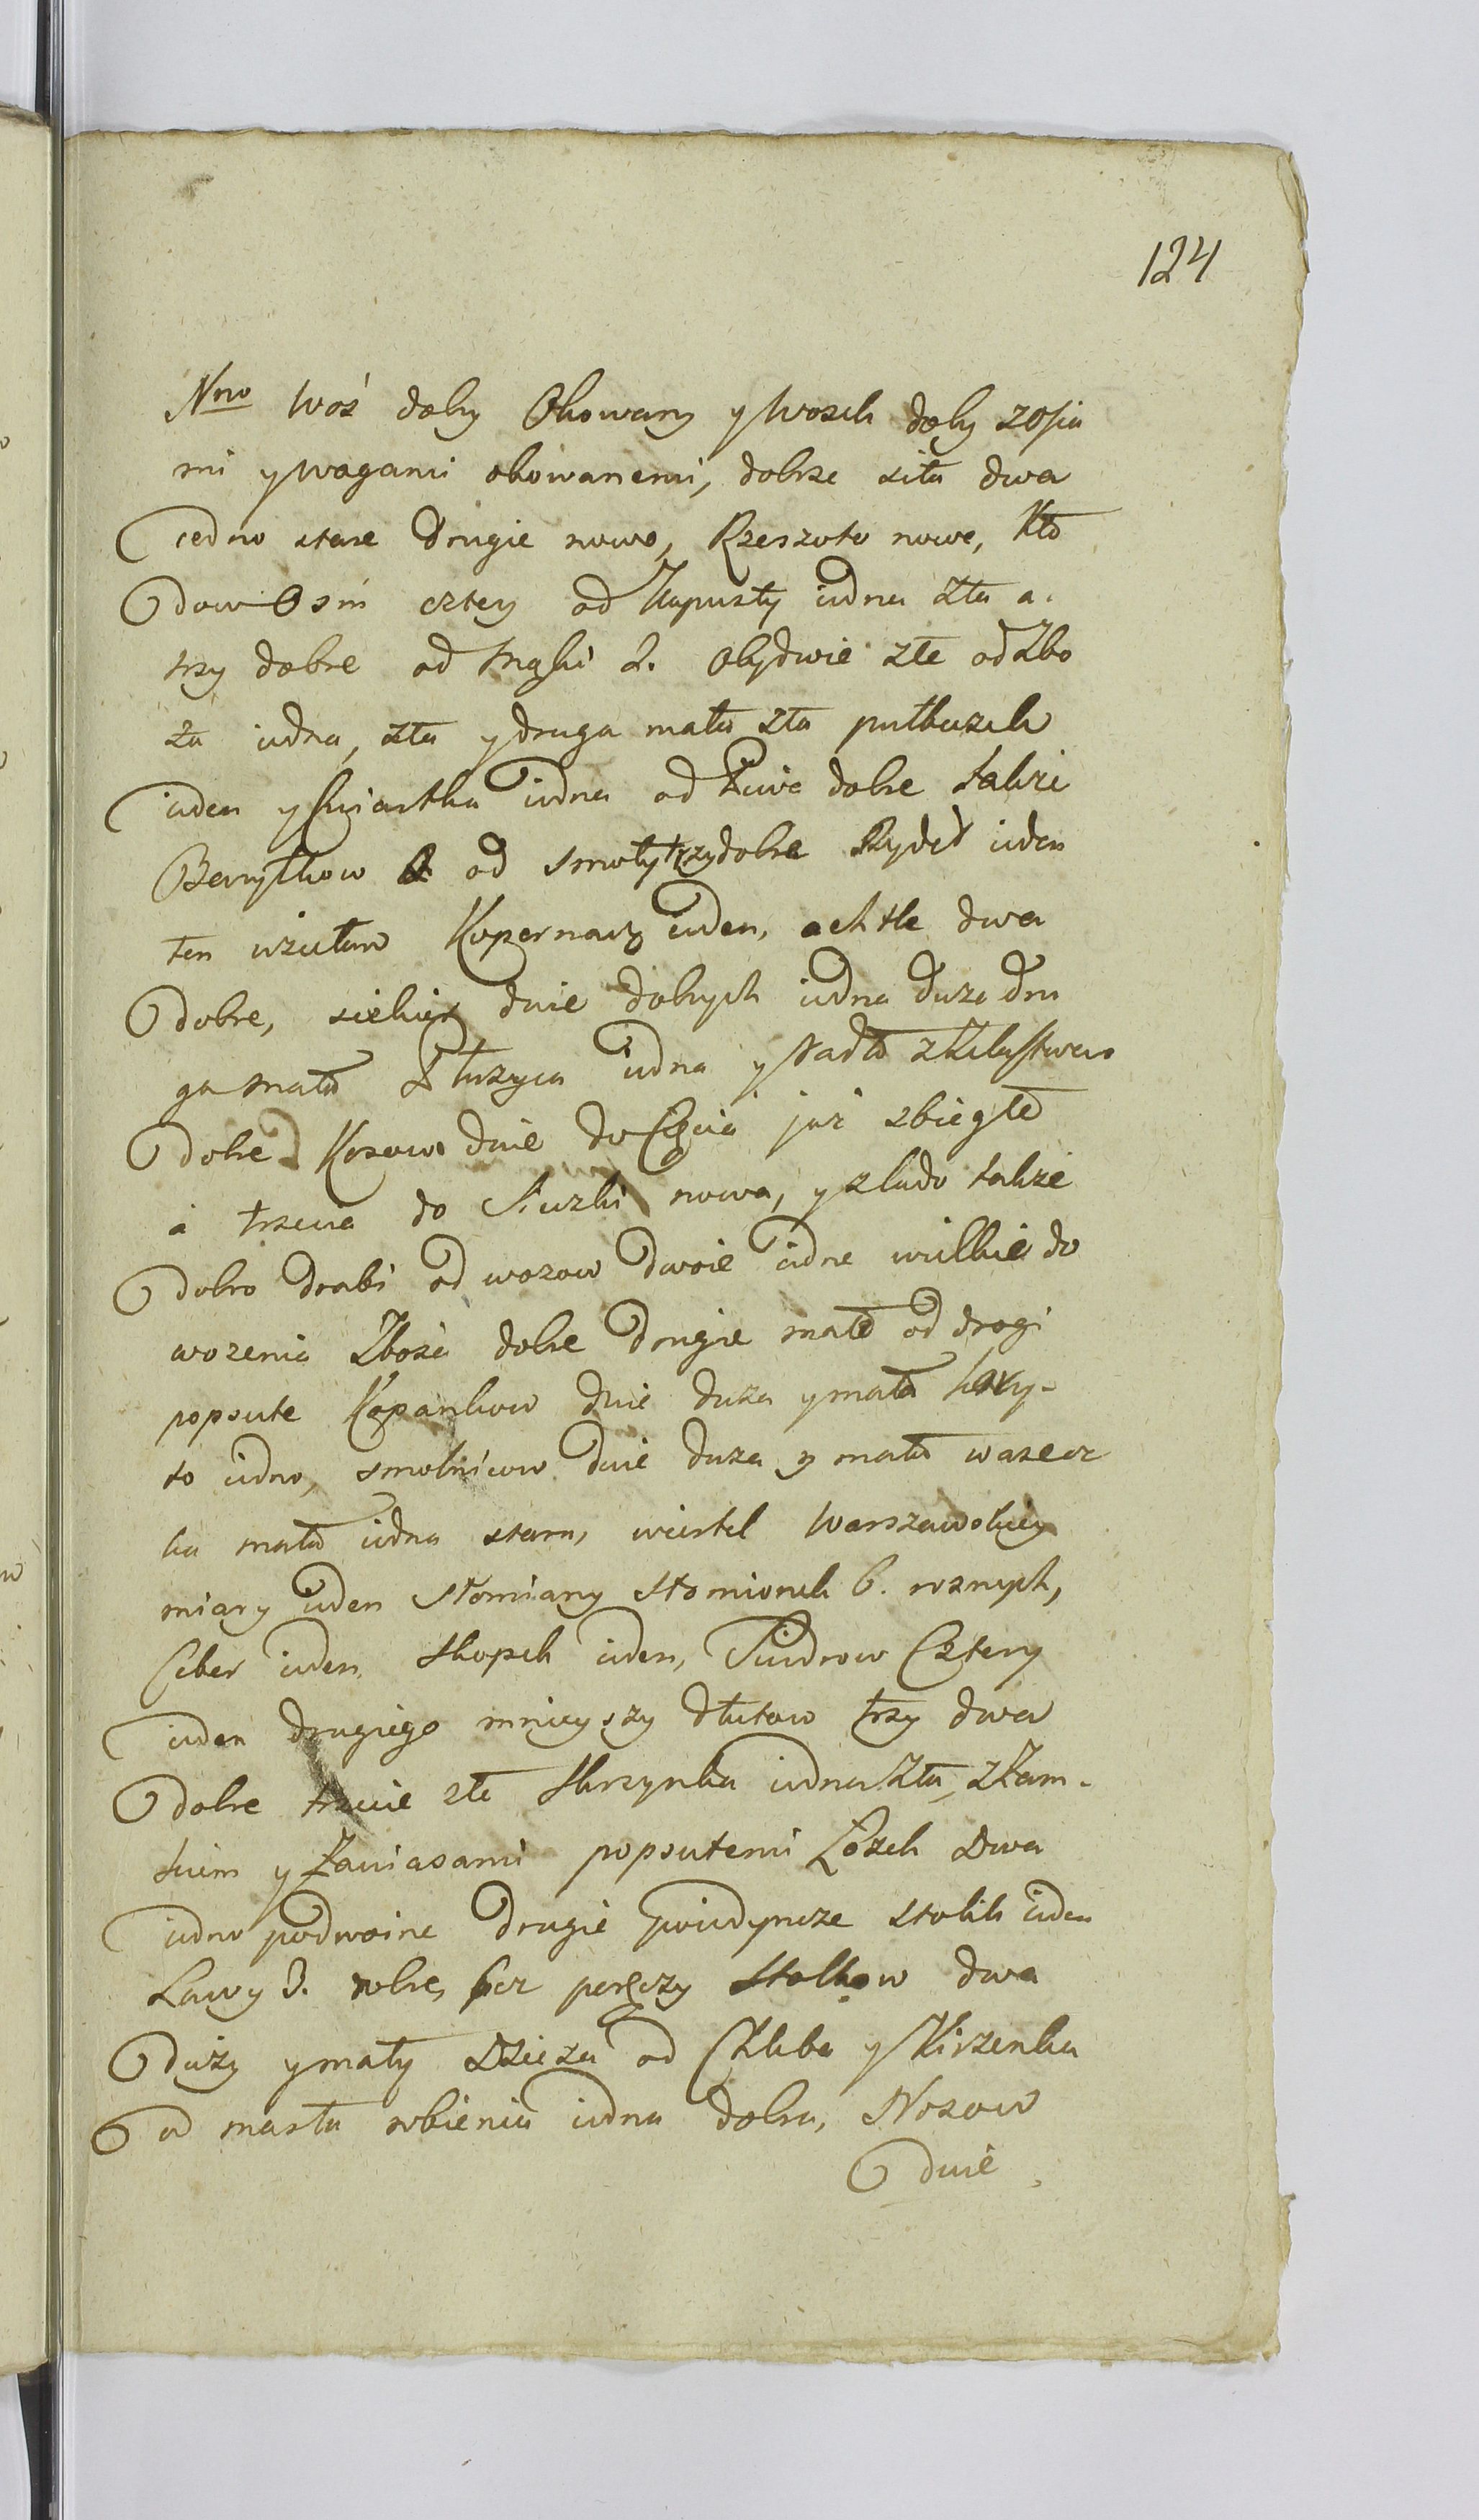 124
Nro Woz doby Okowany y Wozek doby zosia
mi y wagami okowanemi, dobrze sita dwa
iedno stare drugie nowe, Rzeszoto nowe, Kło
dow Osm cztery od Kapusty iedna zła a.
trzy dobre od Mąki 2. obydwie złe od Zbo
za iedna, zła y druga mała zła pułkuszek
ieden y Cwiartka iedna od Piwa dobre takze
Beczyłkow od smoły trzy dobre Rydel ieden
ten wzułem Kopernacz ieden, achtle dwa
dobre, siekier dwie dobrych iedna duza dru
ga mała Kłuszyca iedna y Sadło z Zelastwem
dobre Kosow dwie do Cięcia juz zbiegłe
a trzecia do Sieczki nowa, y zludo takze
dobro drabi od wozow dwoie iedne wielkie do
wozenia Zboza dobre drugie małe od drogi
popsute Kopankow dwie duza y mała kory-
to iedno, smolnicow dwie duza y mała wasecz
ka mała iedna stara, wiertel Warszawskiey
miary ieden Słomiany Słomionek 6. roznych,
Ceber ieden, Skopek ieden, Swidrow Cztery
ieden drugiego mnieyszy dłutow trzy dwa
dobre trzecie złe Skrzynka iedna zła, z Zam-
kiem y Zawiasami popsutemi Łozek Dwa
iedno podwoine drugie poiedyncze stolik ieden
Lawy 3. dobre, bez poręczy Stołkow dwa
duży y mały Dzieza od Chleba y Kirzenka
od masła robienia iedna dobra, Nozow
dwie